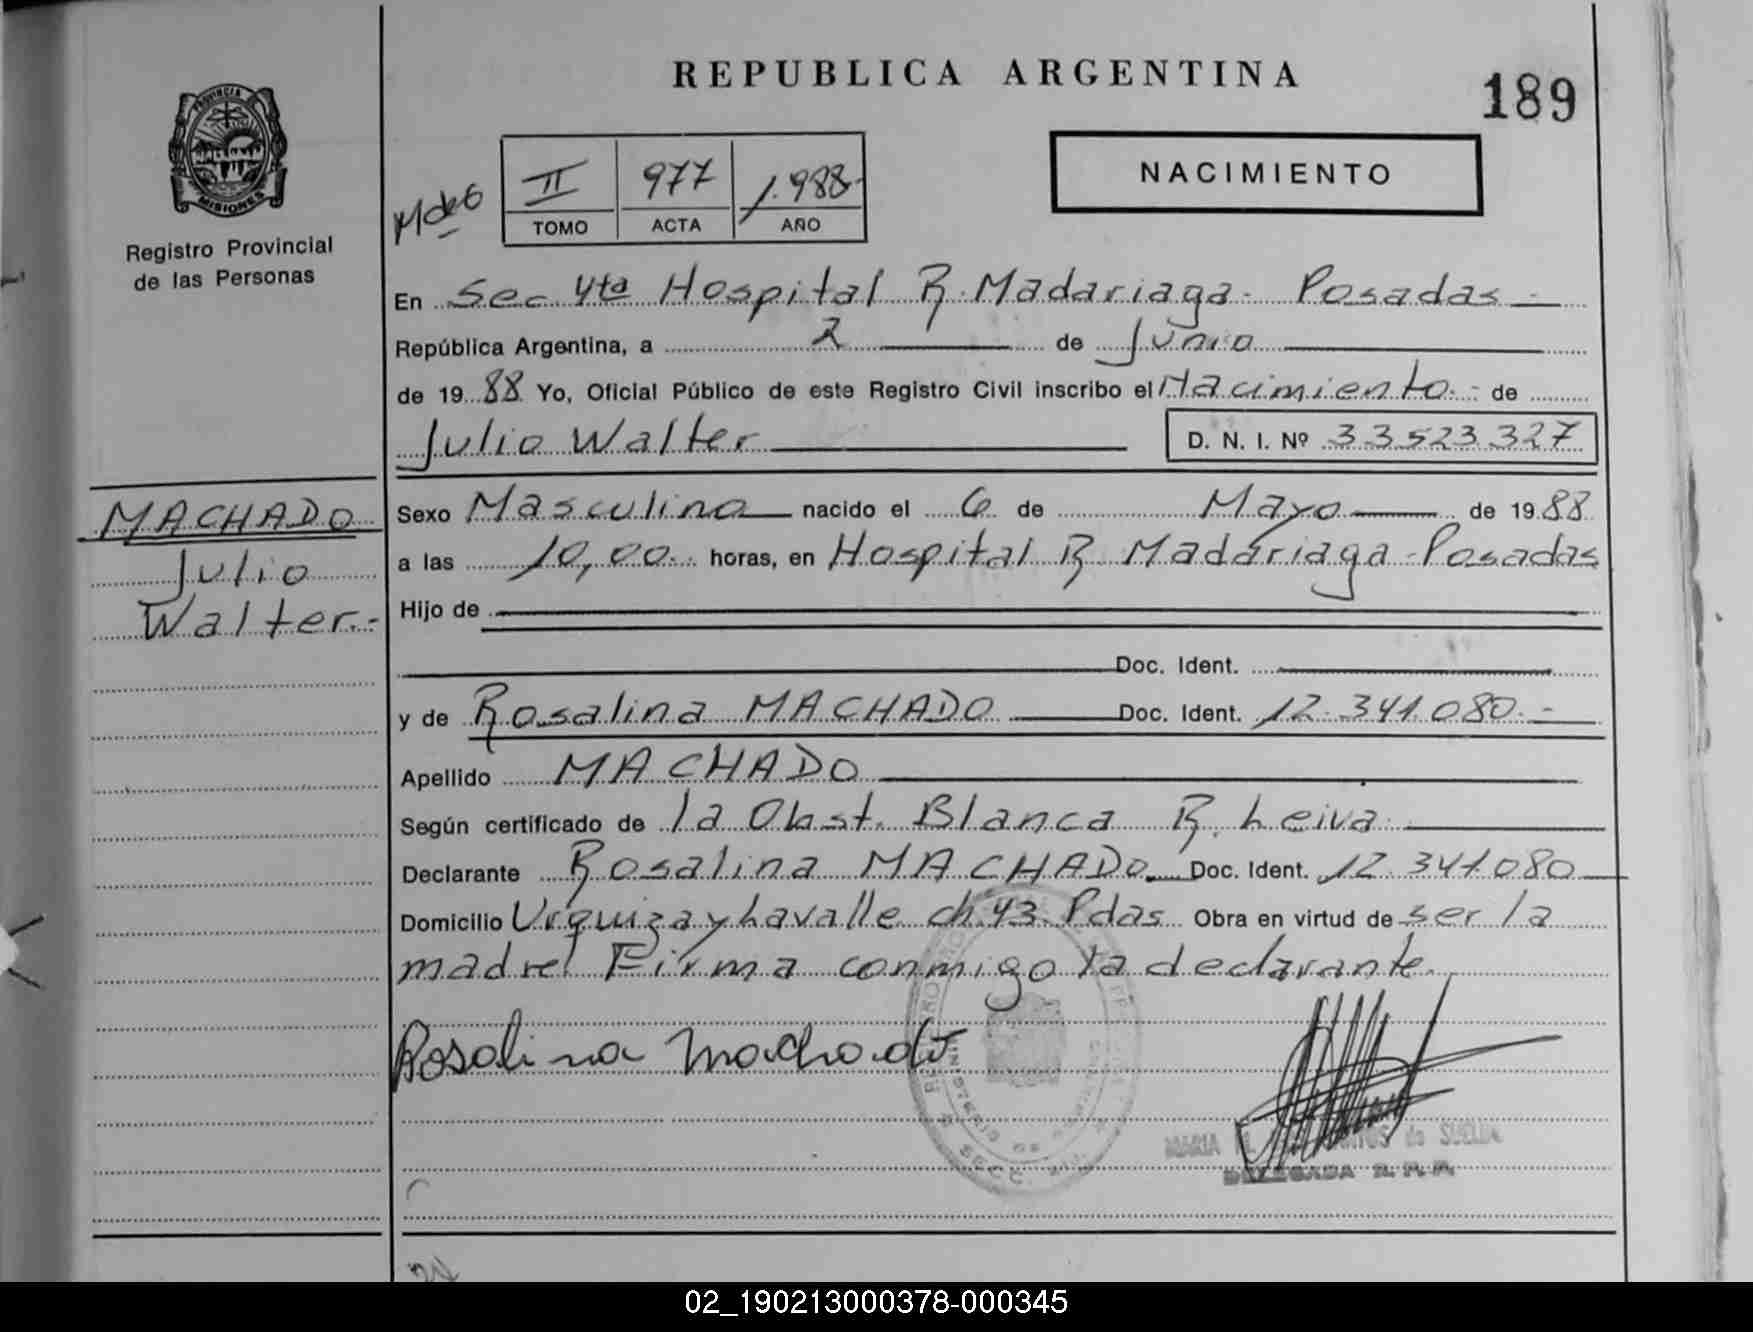 REPUBLICA ARGENTINA
189
PROVINCIA
MISIONES
Registro Provincial
de las Personas
II 977 1.988.-
TOMO ACTA AÑO
NACIMIENTO
En Sec 4ta Hospital R. Madariaga - Posadas -
República Argentina, a 2 de Junio
de 19 88 Yo, Oficial Público de este Registro Civil inscribo el Nacimiento.- de
Julio Walter D. N. I. Nº 33523327
MACHADO
Julio
Walter.-
Sexo Masculino nacido el 6 de Mayo de 19 88
a las 10,00 horas, en Hospital R Madariaga - Posadas
Hijo de
Doc. Ident.
y de Rosalina MACHADO Doc. Ident. 12.341.080.-
Apellido MACHADO
Según certificado de la Obst. Blanca R. Leiva
Declarante Rosalina MACHADO Doc. Ident. 12.341.080
Domicilio Urquiza y Lavalle ch. 43. Pdas Obra en virtud de ser la
madre Firma conmigo la declarante.
Rosalina Machado
MARIA de SUELDO
DELEGADA R. P. P.
02_190213000378-000345